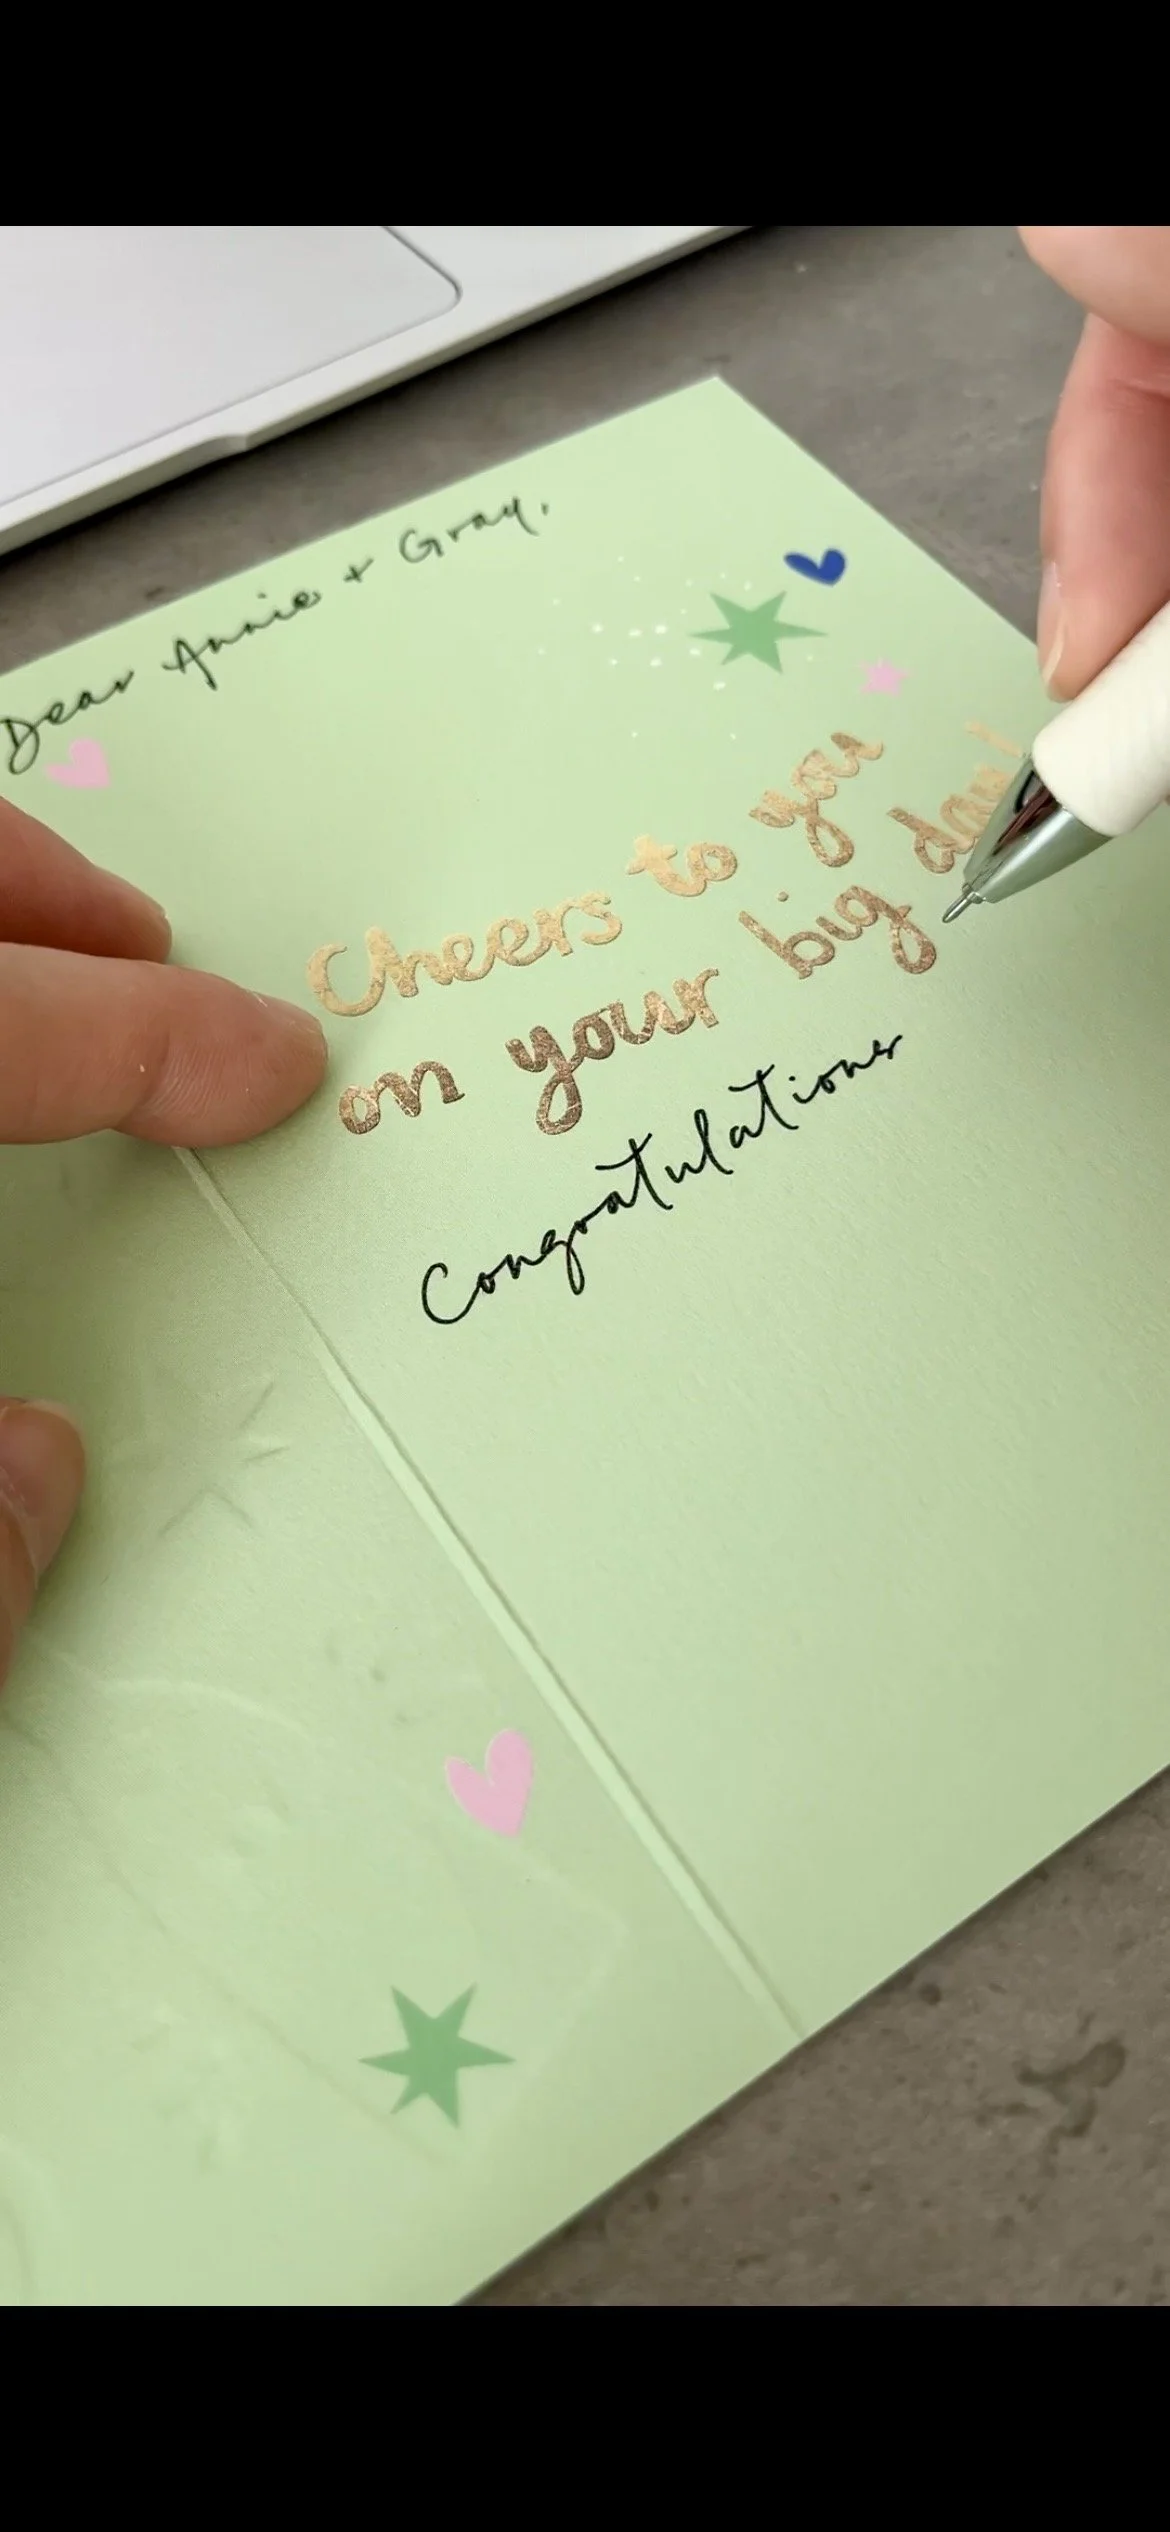 Dear Annie + Gray,
Cheers to you
on your big day!
Congratulations